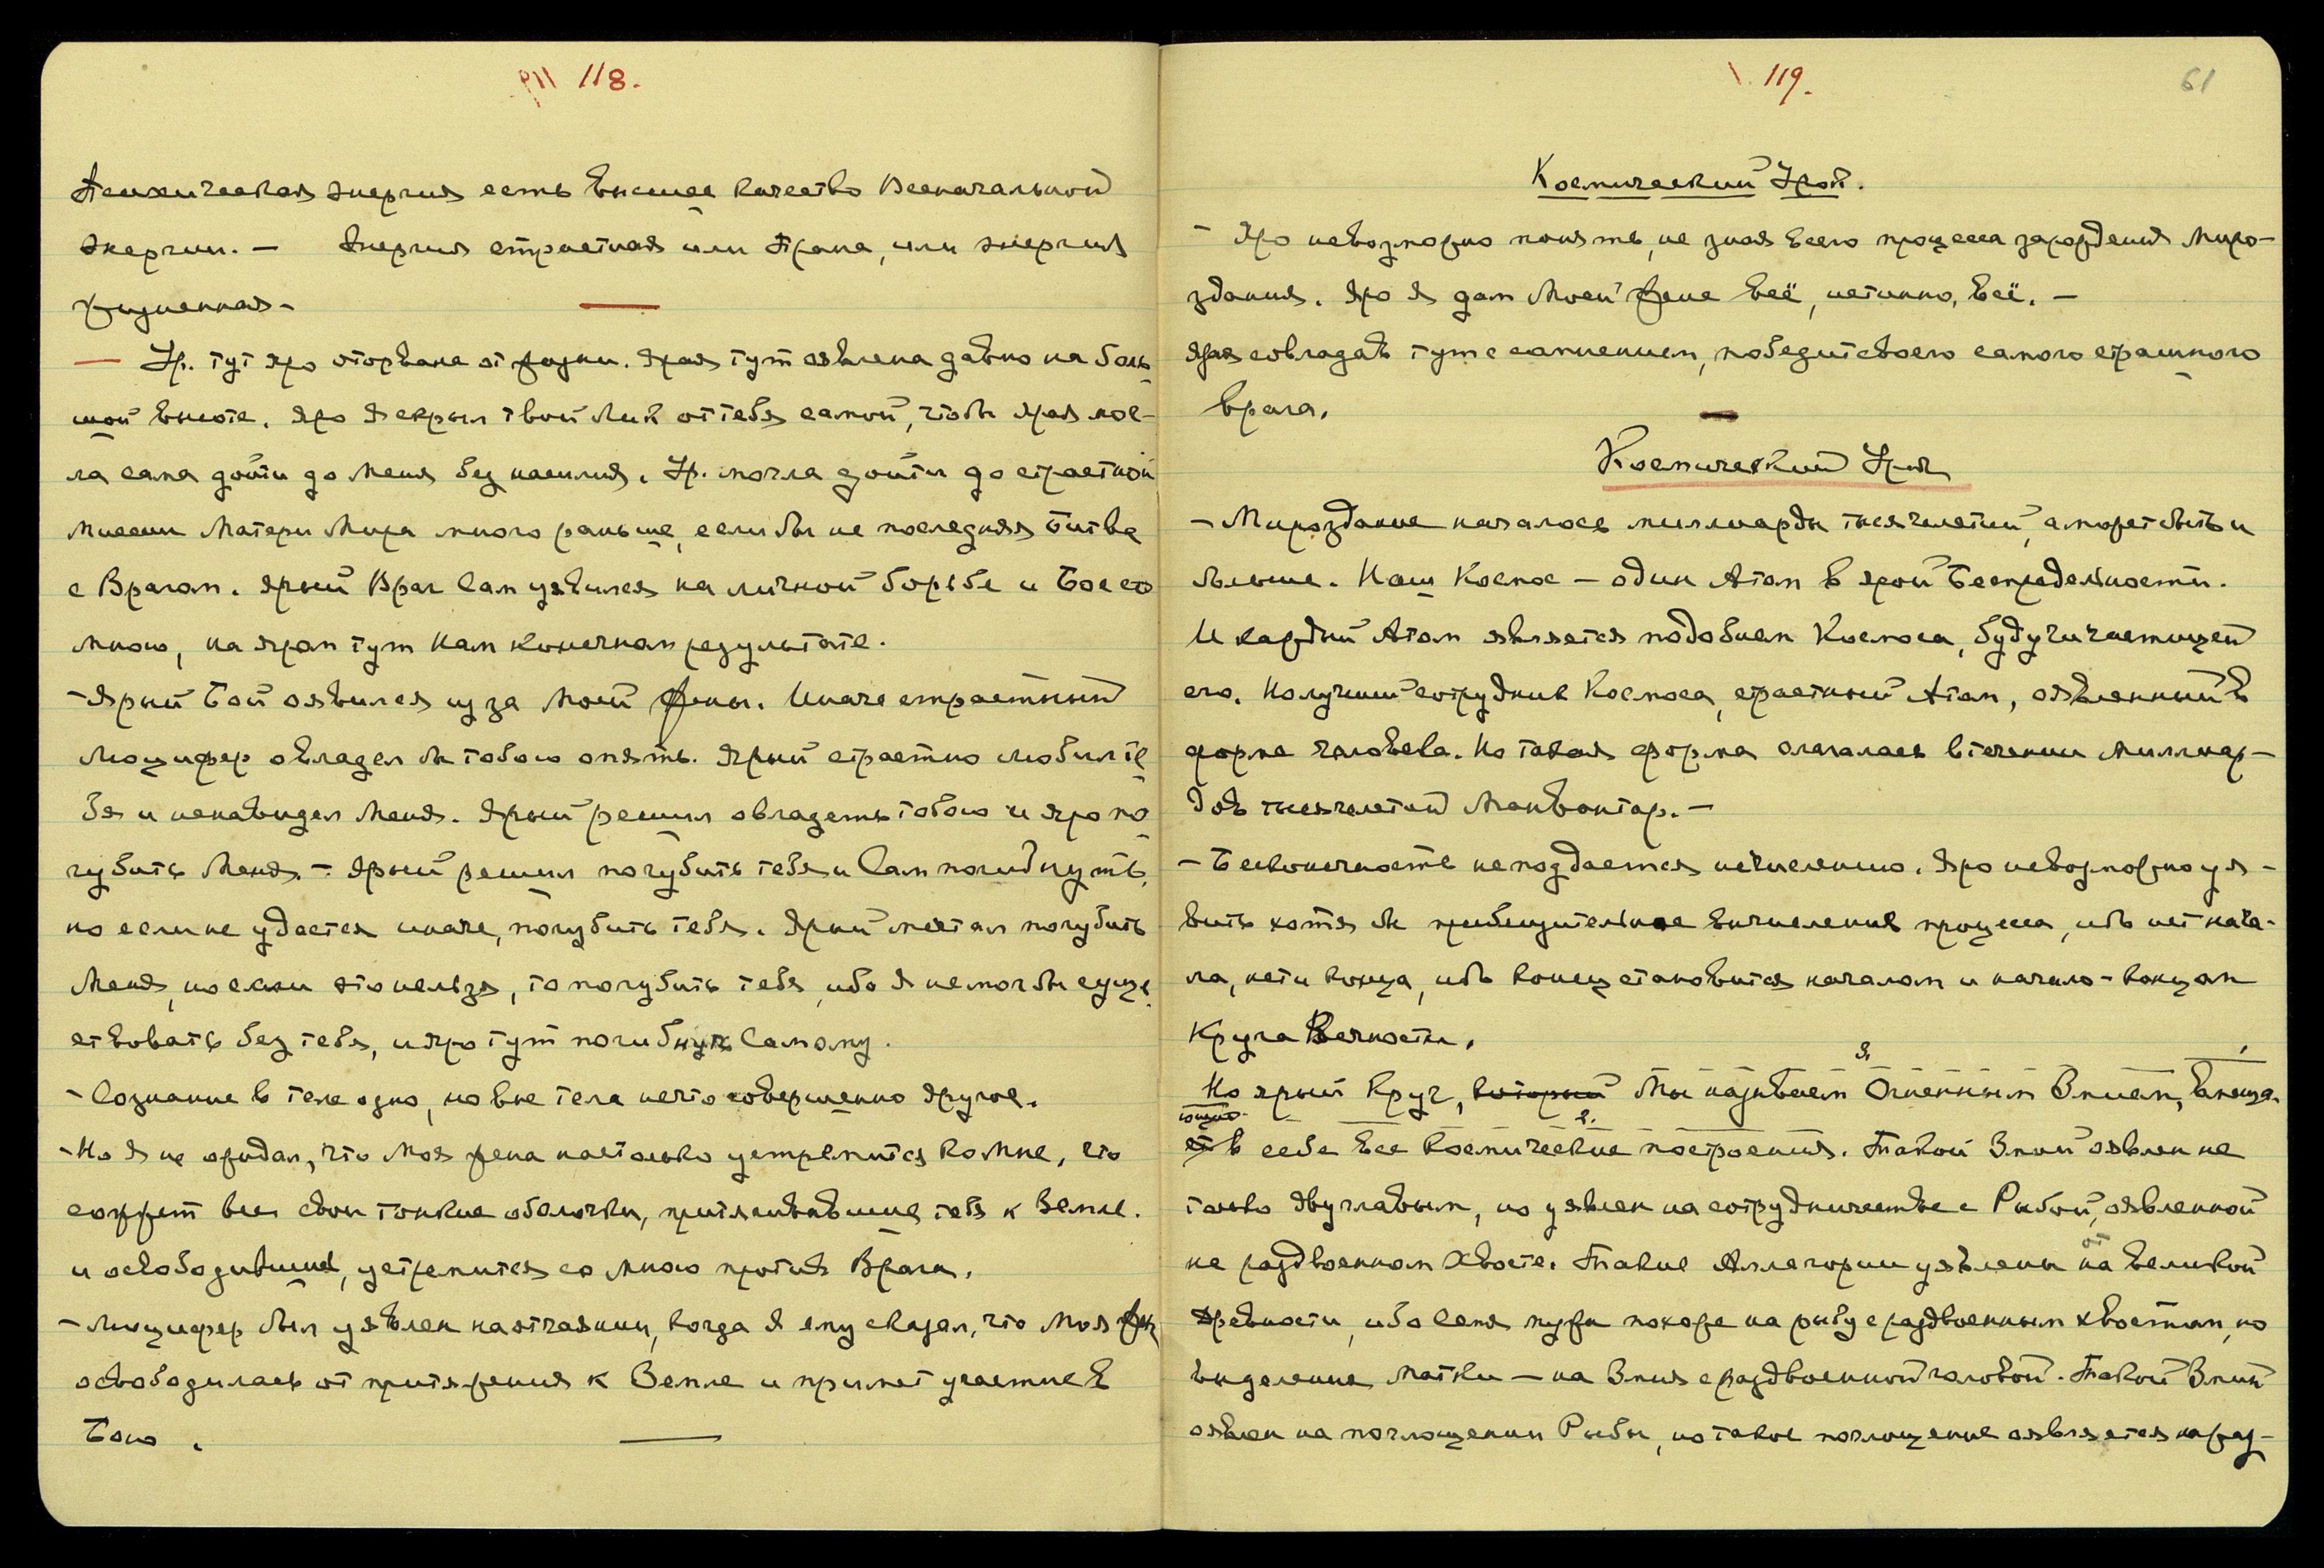 118.
Психическая энергия есть высшее качество Всеначальной
энергии. — Энергия страстная или Прана, или энергия
жизненная —
— Ур. тут яро оторвана от жизни. Ярая тут оявлена давно на боль-
шой высоте. Яро Я скрыл твой Лик от тебя самой, чтобы ярая мог-
ла сама дойти до Меня без насилия. Ур. могла дойти до страстной
миссии Матери Мира много раньше, если бы не последняя Битва
с Врагом. Ярый Враг Сам уявился на личной борьбе и Бое со
мною, на яром тут Нам конечном результате.
— Ярый Бой оявился из за Моей Жены. Иначе страстный
Люцифер овладел бы тобою опять. Ярый страстно любил те-
бя и ненавидел Меня. Ярый решил овладеть тобою и яро по-
губить Меня. — Ярый решил погубить тебя и Сам погибнуть,
но если не удастся иначе, погубить тебя. Ярый мечтал погубить
Меня, но если это нельзя, то погубить тебя, ибо Я не мог бы суще-
ствовать без тебя, и яро тут погибнуть Самому.
— Сознание в теле одно, но вне тела нечто совершенно другое.
— Но Я не ожидал, что Моя жена настолько устремится ко Мне, что
сожжет все свои тонкие оболочки, притягивавшие тебя к Земле.
и освободившись, устремится со Мною против Врага.
— Люцифер был уявлен на отчаянии, когда Я ему сказал, что Моя Жена
освободилась от притяжения к Земле и примет участие в
Бою.
119.
61
Космический Урой.
— Яро невозможно понять, не зная всего процесса зарождения Миро-
здания. Яро Я дам Моей Жене Всё, истинно, Всё. —
Ярая совладав тут с сомнением, победит своего самого страшного
врага.
Космический Урой
— Мироздание началось миллиарды тысячелетий, а может быть и
больше. Наш Космос — один Атом в ярой Беспредельности.
И каждый Атом является подобием Космоса, будучи частицей
его. Наилучший сотрудник Космоса, страстный Атом, оявленный в
форме человека. Но такая форма слагалась в течении миллиар-
дов тысячелетий Манвантар. —
— Бесконечность не поддается исчислению. Яро невозможно уя-
вить хотя бы приблизительное вычисления процесса, ибо нет нача-
ла, нет и конца, ибо конец становится началом и начало — концом
Круга Вечности.
Но ярый Круг, который Мы называем Огненным Змием, вмеща-
ющий в себе все космические построения. Такой Змий оявлен не
только двуглавым, но уявлен на сотрудничестве с Рыбой, оявленной
на раздвоенном хвосте. Такие Аллегории уявлены от великой
древности, ибо семя мужа похоже на рыбу с раздвоенным хвостом, но
выделение матки — на Змия с раздвоенной головой. Такой Змий
оявлен на поглощении Рыбы, но такое поглощение оявляется на раз-